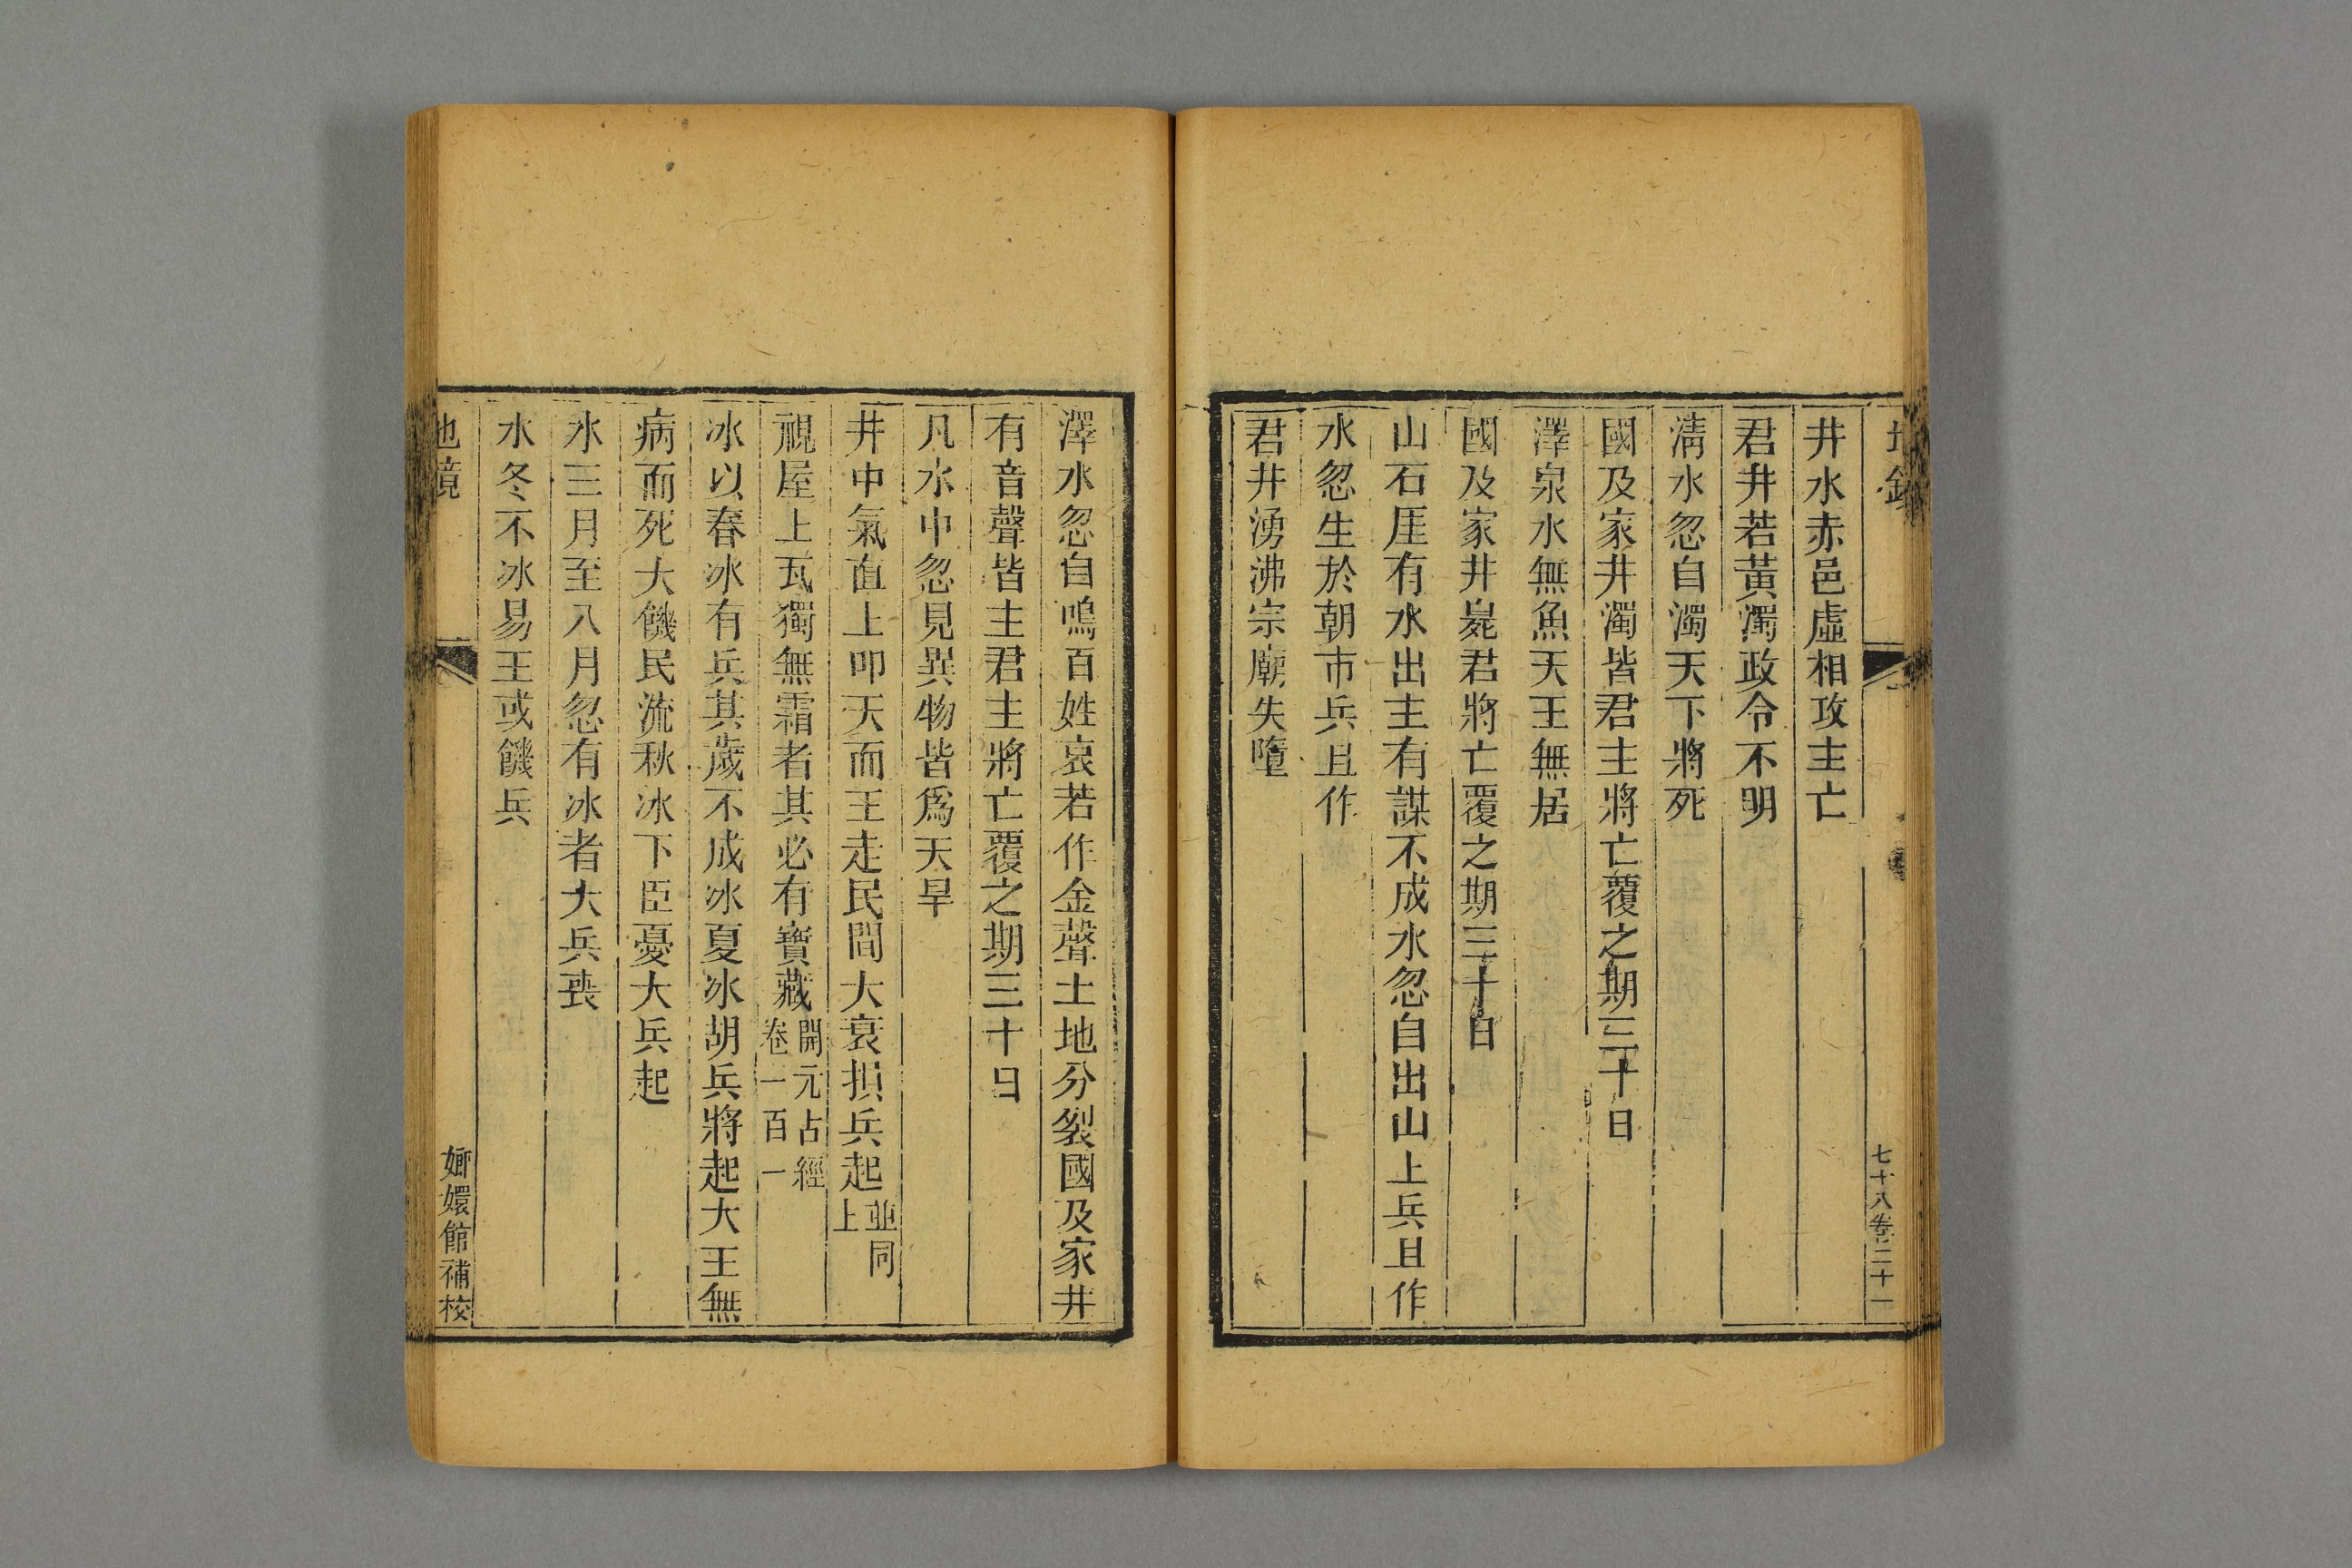 七十八卷二十一
井水赤邑虛相攻主亡
君井若黃濁政令不明
淸水忽自濁天下將死
國及家井濁皆君主將亡覆之期三十日
澤泉水無魚天王無居
國及家井毚君將亡覆之期三十日
山石厓有水出主有謀不成水忽自出山上兵且作
水忽生於朝市兵且作
君井湧沸宗廟失墮
澤水忽自鳴百姓哀若作金聲土地分裂國及家井
有音聲皆主君主將亡覆之期三十日
凡水中忽見異物皆爲天旱
井中氣直上叩天而王走民間大衰損兵起並同上
視屋上瓦獨無霜者其必有寶藏開元占經卷一百一
冰以春冰有兵其歲不成冰夏冰胡兵將起大王無
病而死大饑民流秋冰下臣憂大兵起
水三月至八月忽有冰者大兵喪
水冬不冰易王或饑兵
地鏡
嫏嬛館補校